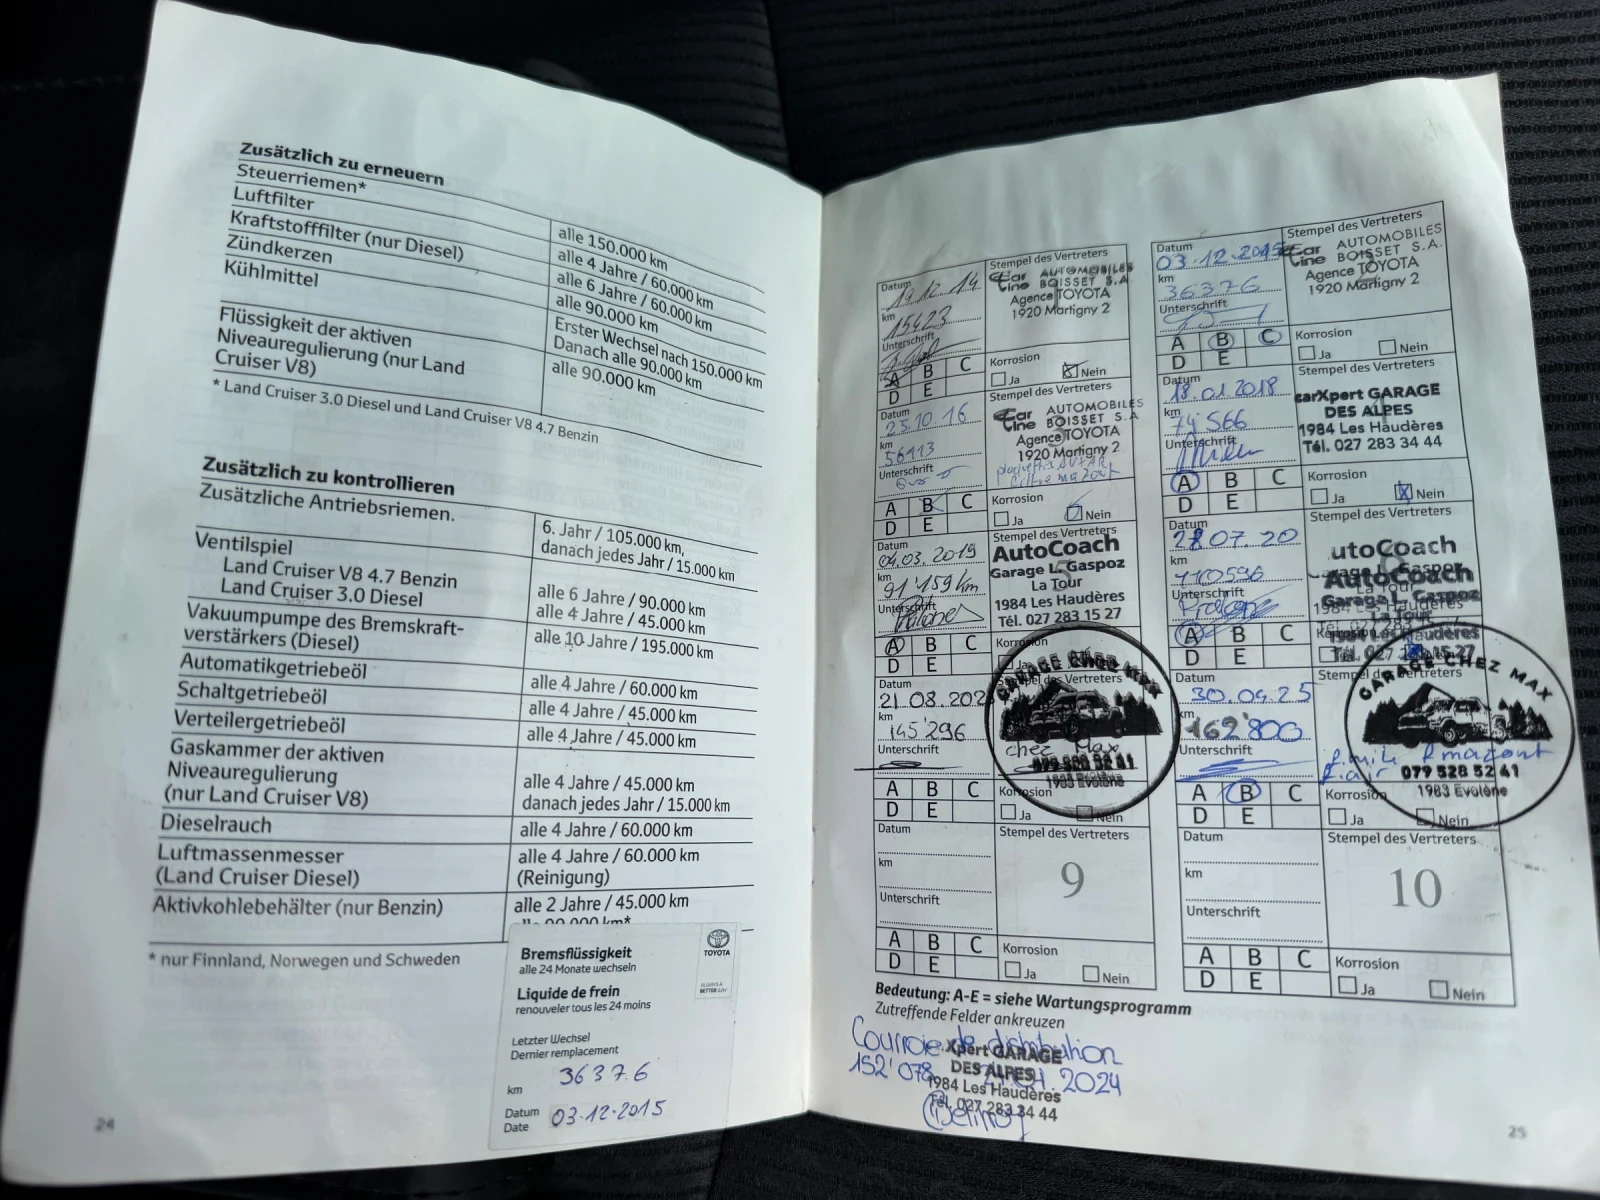 Zusätzlich zu erneuern
Steuerriemen* alle 150.000 km
Luftfilter alle 4 Jahre / 60.000 km
Kraftstofffilter (nur Diesel) alle 6 Jahre / 60.000 km
Zündkerzen alle 90.000 km
Kühlmittel Erster Wechsel nach 150.000 km
Danach alle 90.000 km
Flüssigkeit der aktiven
Niveauregulierung (nur Land
Cruiser V8) alle 90.000 km
* Land Cruiser 3.0 Diesel und Land Cruiser V8 4.7 Benzin
Zusätzlich zu kontrollieren
Zusätzliche Antriebsriemen. 6. Jahr / 105.000 km,
danach jedes Jahr / 15.000 km
Ventilspiel
Land Cruiser V8 4.7 Benzin alle 6 Jahre / 90.000 km
Land Cruiser 3.0 Diesel alle 4 Jahre / 45.000 km
Vakuumpumpe des Bremskraft-
verstärkers (Diesel) alle 10 Jahre / 195.000 km
Automatikgetriebeöl alle 4 Jahre / 60.000 km
Schaltgetriebeöl alle 4 Jahre / 45.000 km
Verteilergetriebeöl alle 4 Jahre / 45.000 km
Gaskammer der aktiven
Niveauregulierung alle 4 Jahre / 45.000 km
(nur Land Cruiser V8) danach jedes Jahr / 15.000 km
Dieselrauch alle 4 Jahre / 60.000 km
Luftmassenmesser alle 4 Jahre / 60.000 km
(Land Cruiser Diesel) (Reinigung)
Aktivkohlebehälter (nur Benzin) alle 2 Jahre / 45.000 km
* nur Finnland, Norwegen und Schweden
Bremsflüssigkeit
alle 24 Monate wechseln
Liquide de frein
renouveler tous les 24 moins
TOYOTA
ALWAYS A
BETTER WAY
Letzter Wechsel
Dernier remplacement
km 36376
Datum
Date 03-12-2015
24
Datum 19.12.14
km 15423
Unterschrift
Stempel des Vertreters
Car AUTOMOBILES
Line BOISSET S.A.
Agence TOYOTA
1920 Martigny 2
A B C
D E
Korrosion
Ja Nein
Datum 03.12.2015
km 36376
Unterschrift
Stempel des Vertreters
Car AUTOMOBILES
Line BOISSET S.A.
Agence TOYOTA
1920 Martigny 2
A B C
D E
Korrosion
Ja Nein
Datum 25.10.16
km 56113
Unterschrift
Stempel des Vertreters
Car AUTOMOBILES
Line BOISSET S.A
Agence TOYOTA
1920 Martigny 2
A B C
D E
Korrosion
Ja Nein
Datum 18.01.2018
km 74566
Unterschrift
Stempel des Vertreters
carXpert GARAGE
DES ALPES
1984 Les Haudères
Tél. 027 283 34 44
A B C
D E
Korrosion
Ja Nein
Datum 04.03.2019
km 91'159 km
Unterschrift
Stempel des Vertreters
AutoCoach
Garage L. Gaspoz
La Tour
1984 Les Haudères
Tél. 027 283 15 27
A B C
D E
Korrosion
Ja
Datum 28.07.20
km 110596
Unterschrift
Stempel des Vertreters
AutoCoach
Garage L. Gaspoz
La Tour
1984 Les Haudères
Tél. 027 283 15 27
A B C
D E
Korrosion
Datum 21.08.202
km 145'296
Unterschrift
Stempel des Vertreters
GARAGE CHEZ MAX
chez Max
079 528 52 41
1983 Evolène
A B C
D E
Korrosion
Ja Nein
Datum 30.04.25
km 162'800
Unterschrift
Stempel des Vertreters
GARAGE CHEZ MAX
079 528 52 41
1983 Evolène
A B C
D E
Korrosion
Ja Nein
Datum
km
Unterschrift
Stempel des Vertreters
9
A B C
D E
Korrosion
Ja Nein
Datum
km
Unterschrift
Stempel des Vertreters
10
A B C
D E
Korrosion
Ja Nein
Bedeutung: A-E = siehe Wartungsprogramm
Zutreffende Felder ankreuzen
Courroie de distribution
152'078 04.2024
Xpert GARAGE
DES ALPES
1984 Les Haudères
Tél. 027 283 34 44
25